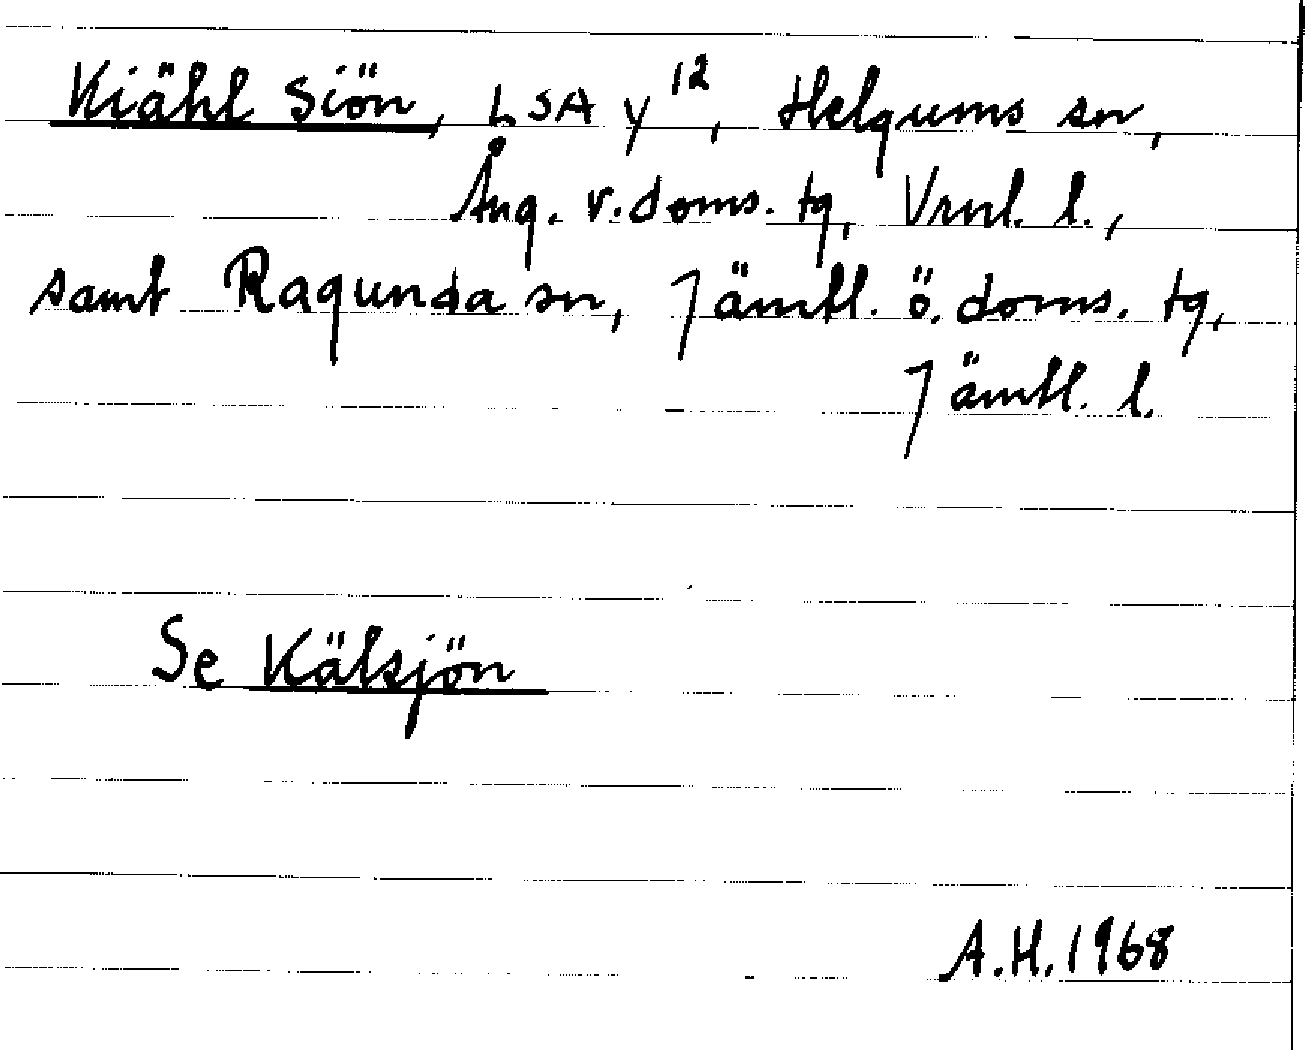 Kiähl Siön, LSA Y 12, Helgums sn,
Ång. v. doms. tg, Vrnl. l.,
samt Ragunda sn, Jämtl. ö. doms. tg,
Jämtl. l.
Se Kälsjön
A.H. 1968